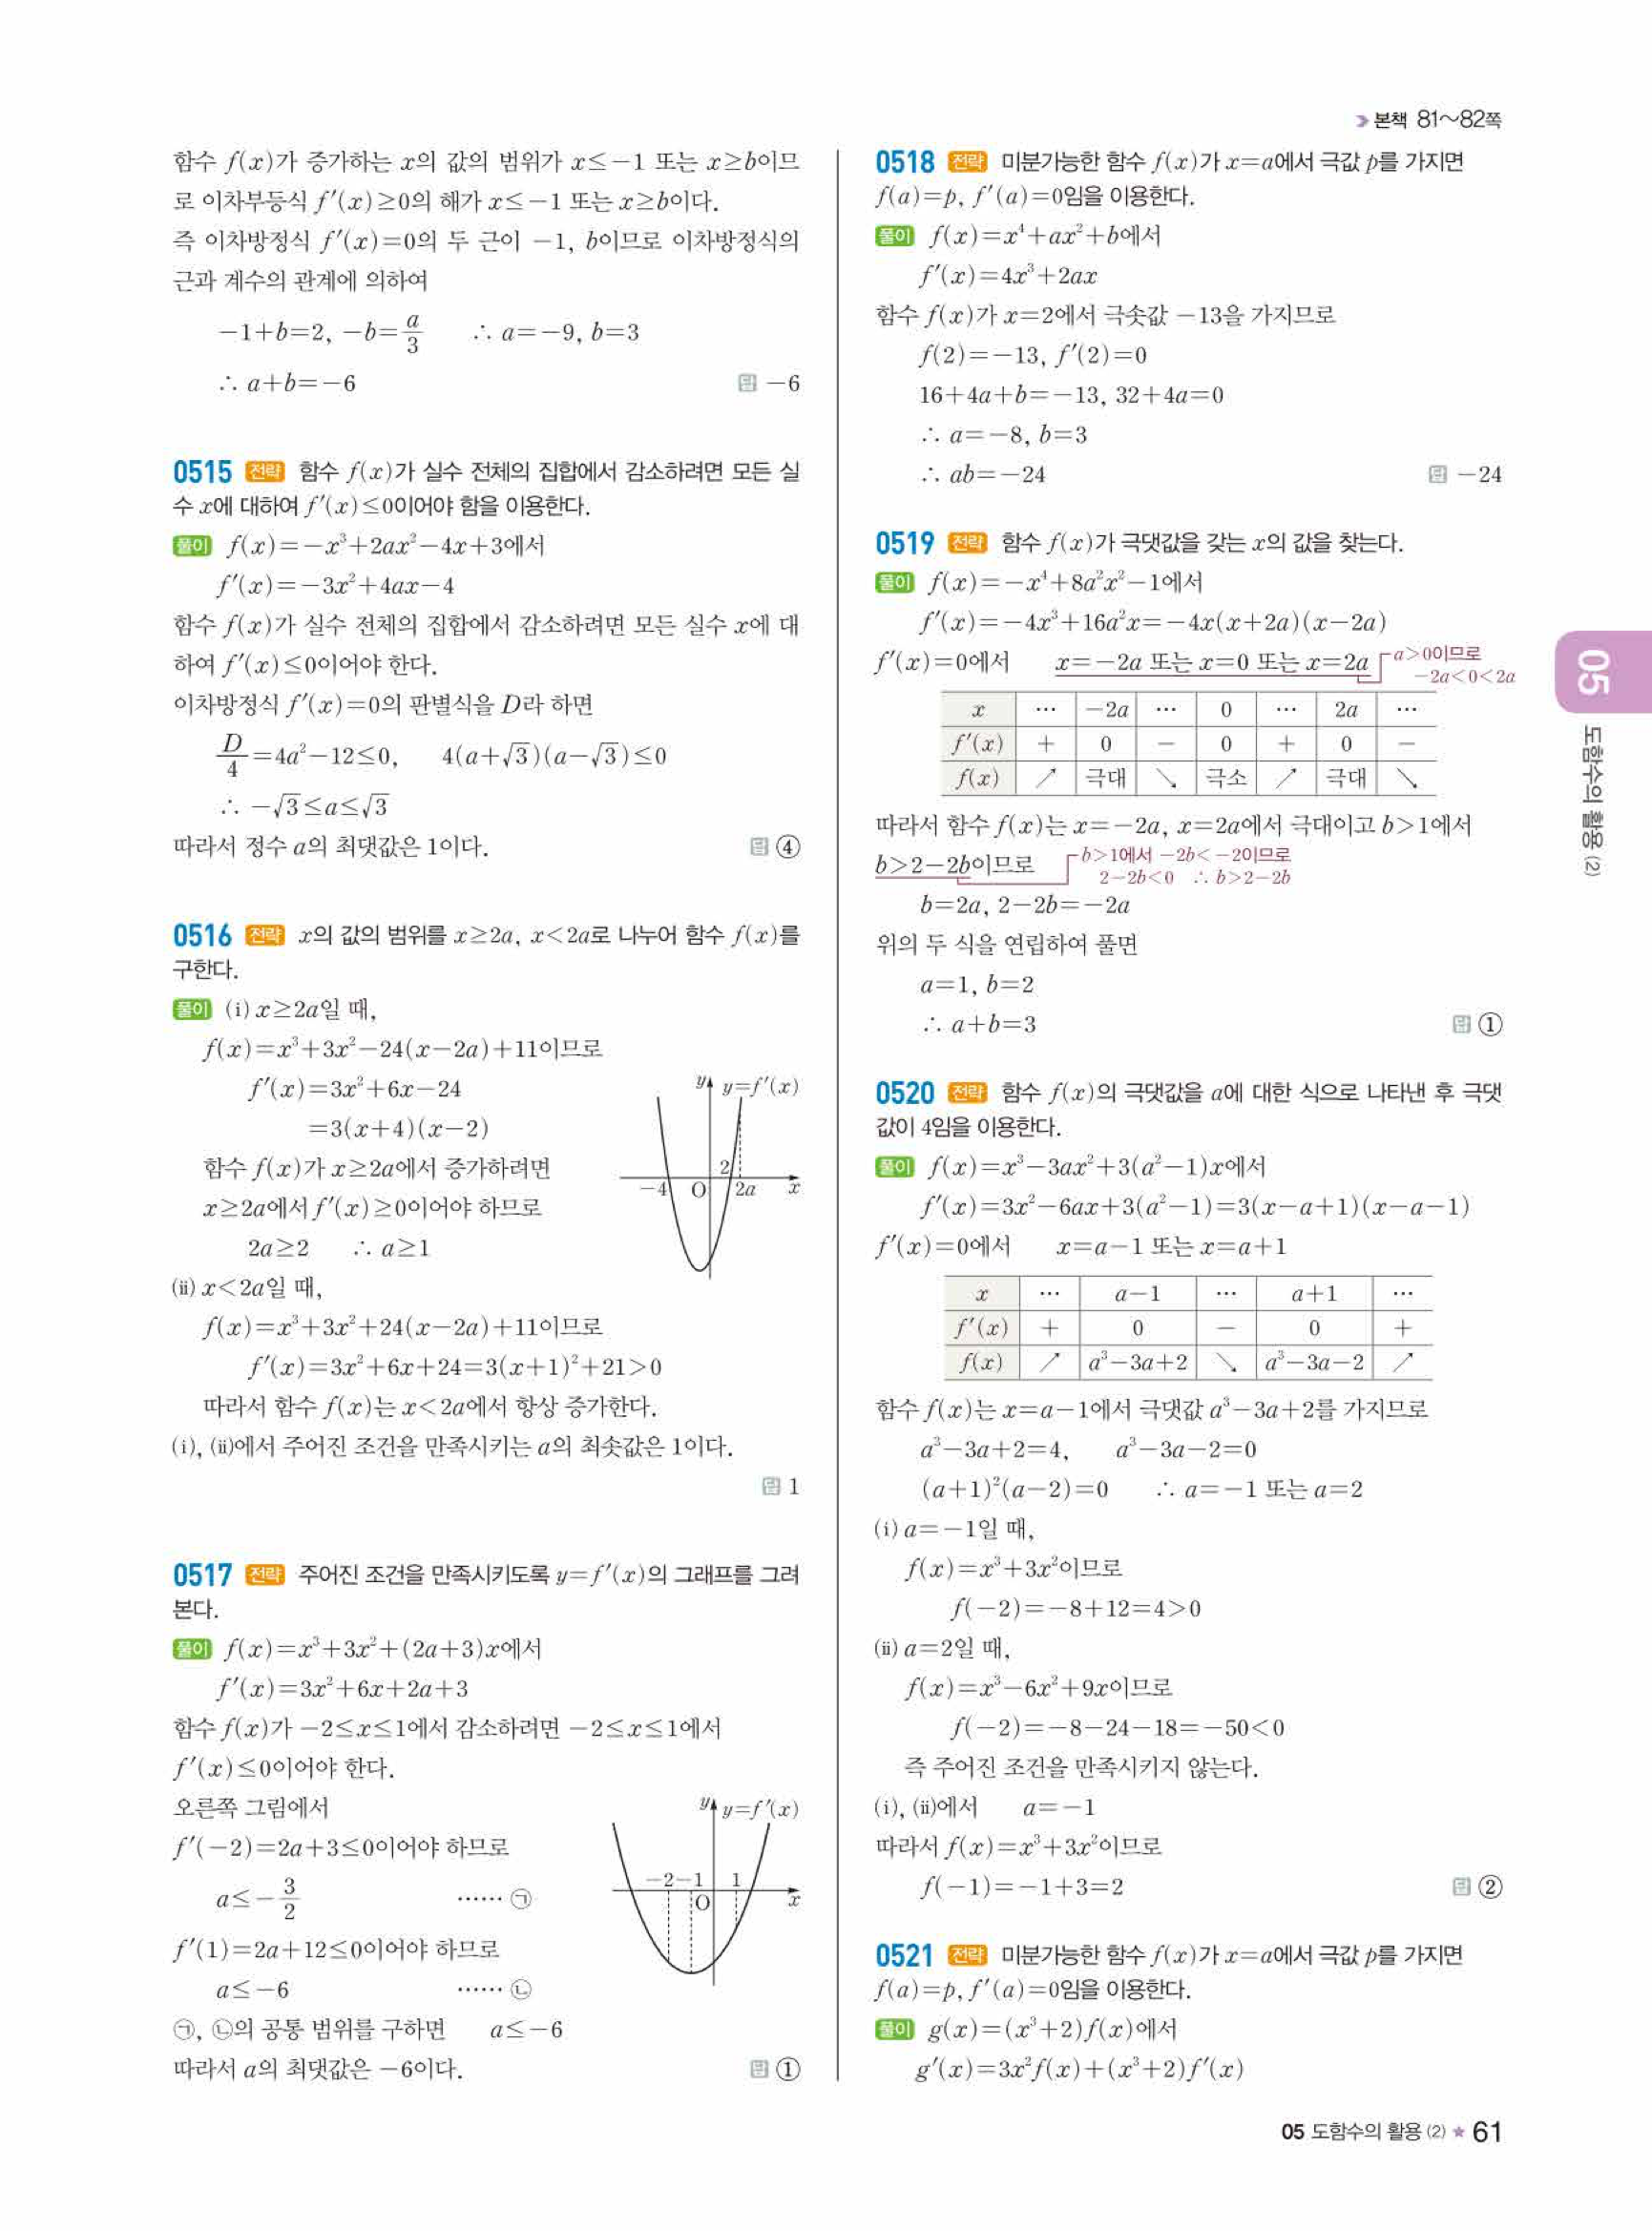 본책 81~82쪽
함수 f(x)가 증가하는 x의 값의 범위가 x≤-1 또는 x≥b이므
로 이차부등식 f′(x)≥0의 해가 x≤-1 또는 x≥b이다.
즉 이차방정식 f′(x)=0의 두 근이 -1, b이므로 이차방정식의
근과 계수의 관계에 의하여
-1+b=2, -b=a/3 ∴ a=-9, b=3
∴ a+b=-6 답 -6
0515 전략 함수 f(x)가 실수 전체의 집합에서 감소하려면 모든 실
수 x에 대하여 f′(x)≤0이어야 함을 이용한다.
풀이 f(x)=-x³+2ax²-4x+3에서
f′(x)=-3x²+4ax-4
함수 f(x)가 실수 전체의 집합에서 감소하려면 모든 실수 x에 대
하여 f′(x)≤0이어야 한다.
이차방정식 f′(x)=0의 판별식을 D라 하면
D/4=4a²-12≤0, 4(a+√3)(a-√3)≤0
∴ -√3≤a≤√3
따라서 정수 a의 최댓값은 1이다. 답 ④
0516 전략 x의 값의 범위를 x≥2a, x<2a로 나누어 함수 f(x)를
구한다.
풀이 (i) x≥2a일 때,
f(x)=x³+3x²-24(x-2a)+11이므로
f′(x)=3x²+6x-24
=3(x+4)(x-2)
함수 f(x)가 x≥2a에서 증가하려면
x≥2a에서 f′(x)≥0이어야 하므로
2a≥2 ∴ a≥1
y y=f′(x)
2
-4 O 2a x
(ii) x<2a일 때,
f(x)=x³+3x²+24(x-2a)+11이므로
f′(x)=3x²+6x+24=3(x+1)²+21>0
따라서 함수 f(x)는 x<2a에서 항상 증가한다.
(i), (ii)에서 주어진 조건을 만족시키는 a의 최솟값은 1이다.
답 1
0517 전략 주어진 조건을 만족시키도록 y=f′(x)의 그래프를 그려
본다.
풀이 f(x)=x³+3x²+(2a+3)x에서
f′(x)=3x²+6x+2a+3
함수 f(x)가 -2≤x≤1에서 감소하려면 -2≤x≤1에서
f′(x)≤0이어야 한다.
오른쪽 그림에서
f′(-2)=2a+3≤0이어야 하므로
a≤-3/2 …… ㉠
f′(1)=2a+12≤0이어야 하므로
a≤-6 …… ㉡
y y=f′(x)
-2 -1 1
O x
㉠, ㉡의 공통 범위를 구하면 a≤-6
따라서 a의 최댓값은 -6이다. 답 ①
0518 전략 미분가능한 함수 f(x)가 x=a에서 극값 p를 가지면
f(a)=p, f′(a)=0임을 이용한다.
풀이 f(x)=x⁴+ax²+b에서
f′(x)=4x³+2ax
함수 f(x)가 x=2에서 극솟값 -13을 가지므로
f(2)=-13, f′(2)=0
16+4a+b=-13, 32+4a=0
∴ a=-8, b=3
∴ ab=-24 답 -24
0519 전략 함수 f(x)가 극댓값을 갖는 x의 값을 찾는다.
풀이 f(x)=-x⁴+8a²x²-1에서
f′(x)=-4x³+16a²x=-4x(x+2a)(x-2a)
f′(x)=0에서 x=-2a 또는 x=0 또는 x=2a
a>0이므로
-2a<0<2a
x … -2a … 0 … 2a …
f′(x) + 0 - 0 + 0 -
f(x) ↗ 극대 ↘ 극소 ↗ 극대 ↘
따라서 함수 f(x)는 x=-2a, x=2a에서 극대이고 b>1에서
b>2-2b이므로
b>1에서 -2b<-2이므로
2-2b<0 ∴ b>2-2b
b=2a, 2-2b=-2a
위의 두 식을 연립하여 풀면
a=1, b=2
∴ a+b=3 답 ①
0520 전략 함수 f(x)의 극댓값을 a에 대한 식으로 나타낸 후 극댓
값이 4임을 이용한다.
풀이 f(x)=x³-3ax²+3(a²-1)x에서
f′(x)=3x²-6ax+3(a²-1)=3(x-a+1)(x-a-1)
f′(x)=0에서 x=a-1 또는 x=a+1
x … a-1 … a+1 …
f′(x) + 0 - 0 +
f(x) ↗ a³-3a+2 ↘ a³-3a-2 ↗
함수 f(x)는 x=a-1에서 극댓값 a³-3a+2를 가지므로
a³-3a+2=4, a³-3a-2=0
(a+1)²(a-2)=0 ∴ a=-1 또는 a=2
(i) a=-1일 때,
f(x)=x³+3x²이므로
f(-2)=-8+12=4>0
(ii) a=2일 때,
f(x)=x³-6x²+9x이므로
f(-2)=-8-24-18=-50<0
즉 주어진 조건을 만족시키지 않는다.
(i), (ii)에서 a=-1
따라서 f(x)=x³+3x²이므로
f(-1)=-1+3=2 답 ②
0521 전략 미분가능한 함수 f(x)가 x=a에서 극값 p를 가지면
f(a)=p, f′(a)=0임을 이용한다.
풀이 g(x)=(x³+2)f(x)에서
g′(x)=3x²f(x)+(x³+2)f′(x)
05 도함수의 활용 (2)
05 도함수의 활용 (2) ★ 61